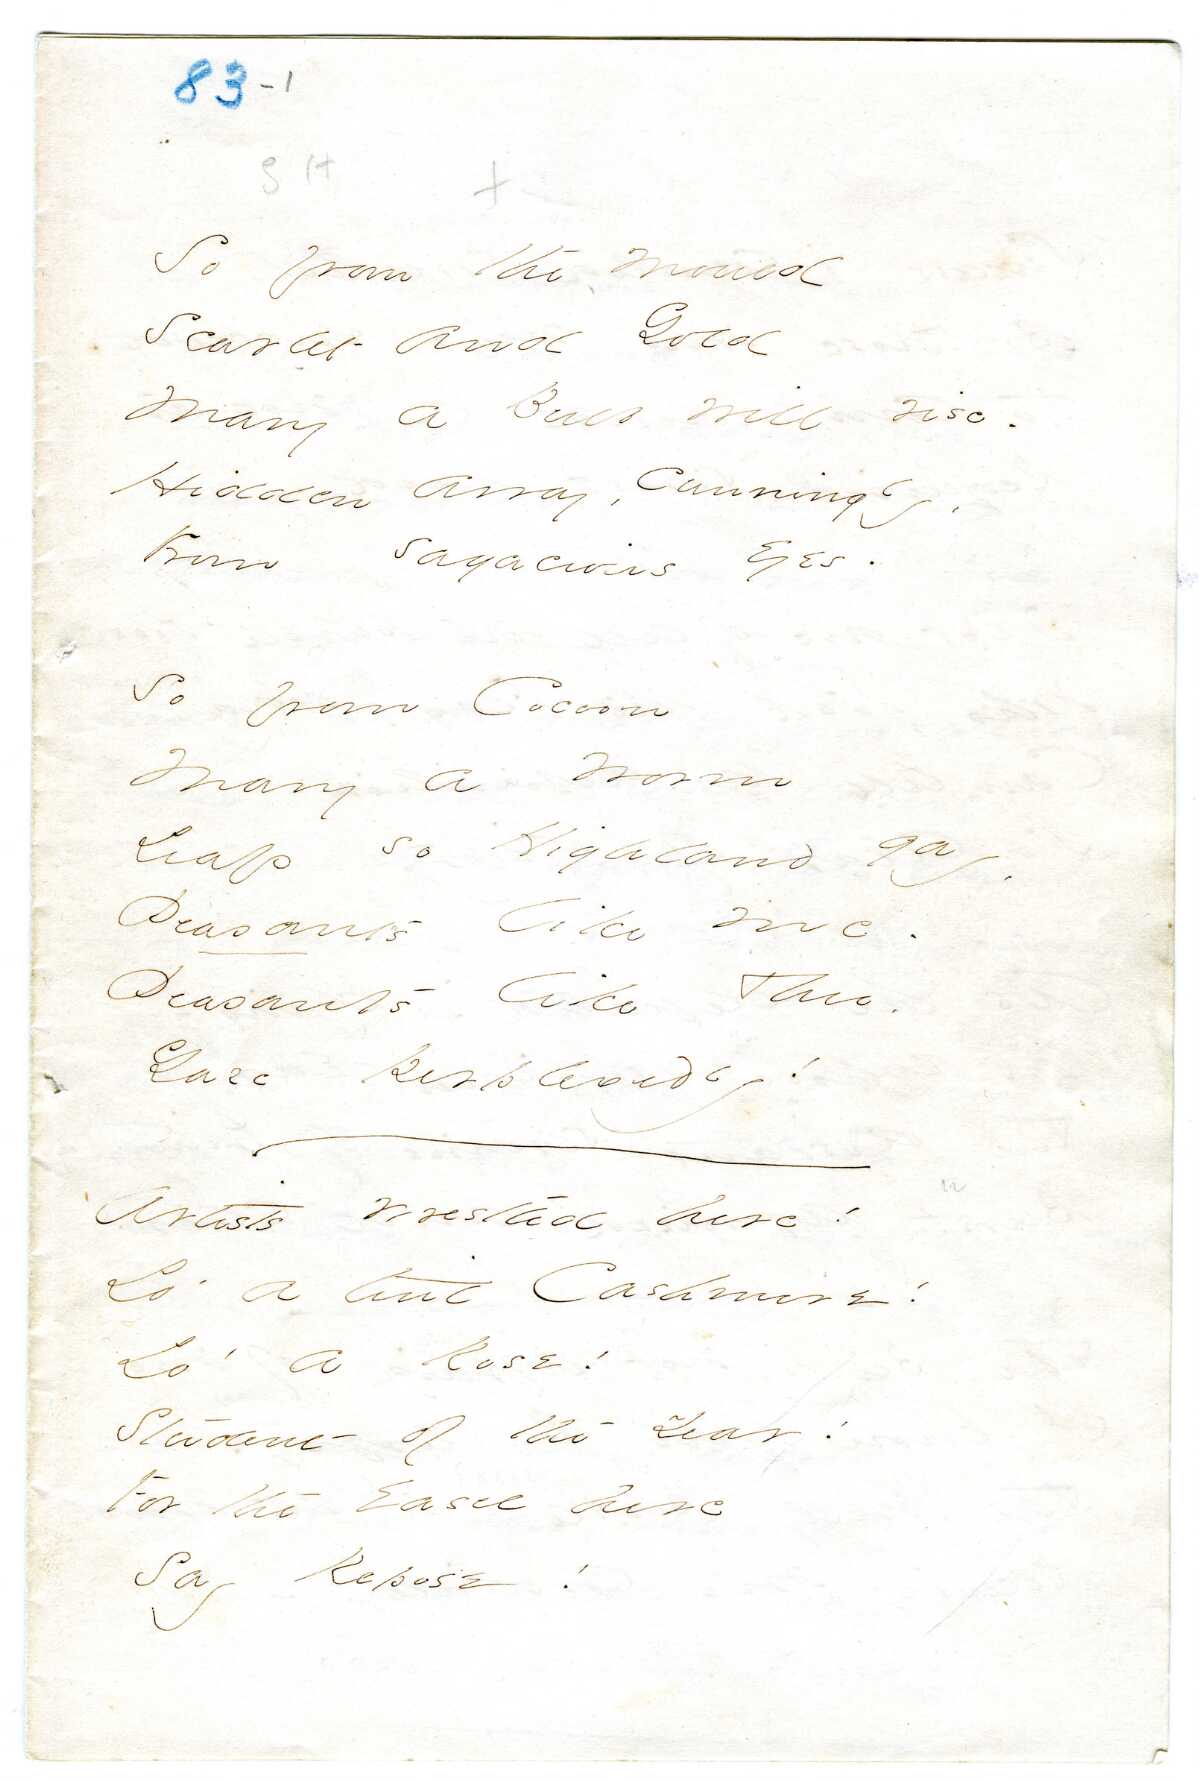 83-1
SH +
So from the mould
Scarlet and Gold
Many a Bulb will rise.
Hidden away, cunningly,
From sagacious eyes.
So from Cocoon
Many a Worm
Leap so Highland gay,
Peasants like me.
Peasants like Thee,
Gaze perplexedly!
Artists wrestled here!
Lo' a tint Cashmere!
Lo' a Rose!
Student of the Year!
For the Easel here
Say Repose!